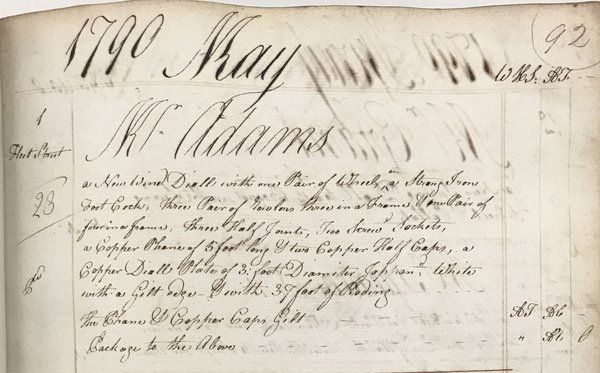 1790 May
92
W HS: AT.
1
Mr Adams
Fleet Street
a New Wind Diall with one Pair of Wheels in a Strong Iron
28
Foot Cock, three Pair of Rowlors three in a Frame & one Pair of
four in a frame, three Half Joints, Two Screw'd Sockets,
a Copper Phane of 5 foot long & two Copper Half Caps, a
Copper Diall Plate of 3: foot Diameter Japhan'd White
with a Gilt edge & with 37 foot of Roding
the Phane & Copper Caps Gilt
Package to the Above